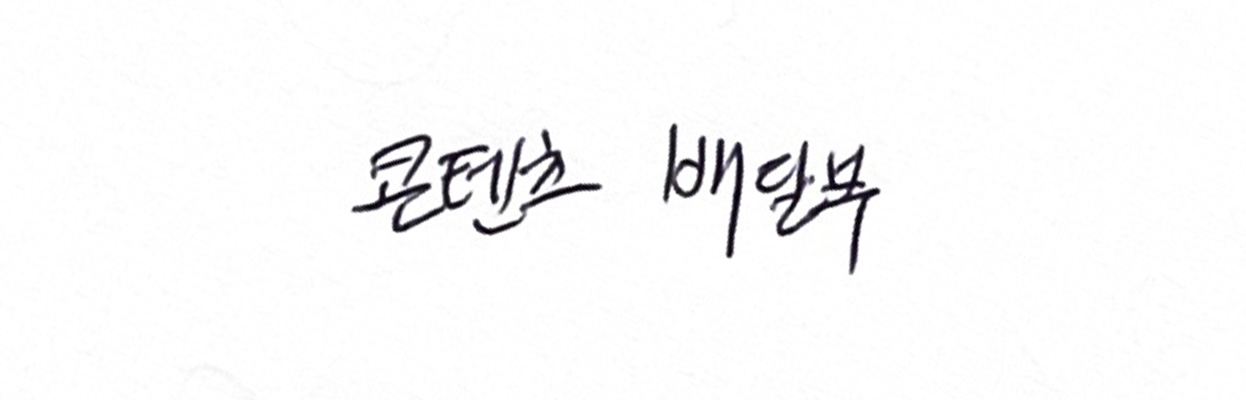 콘텐츠 배달부